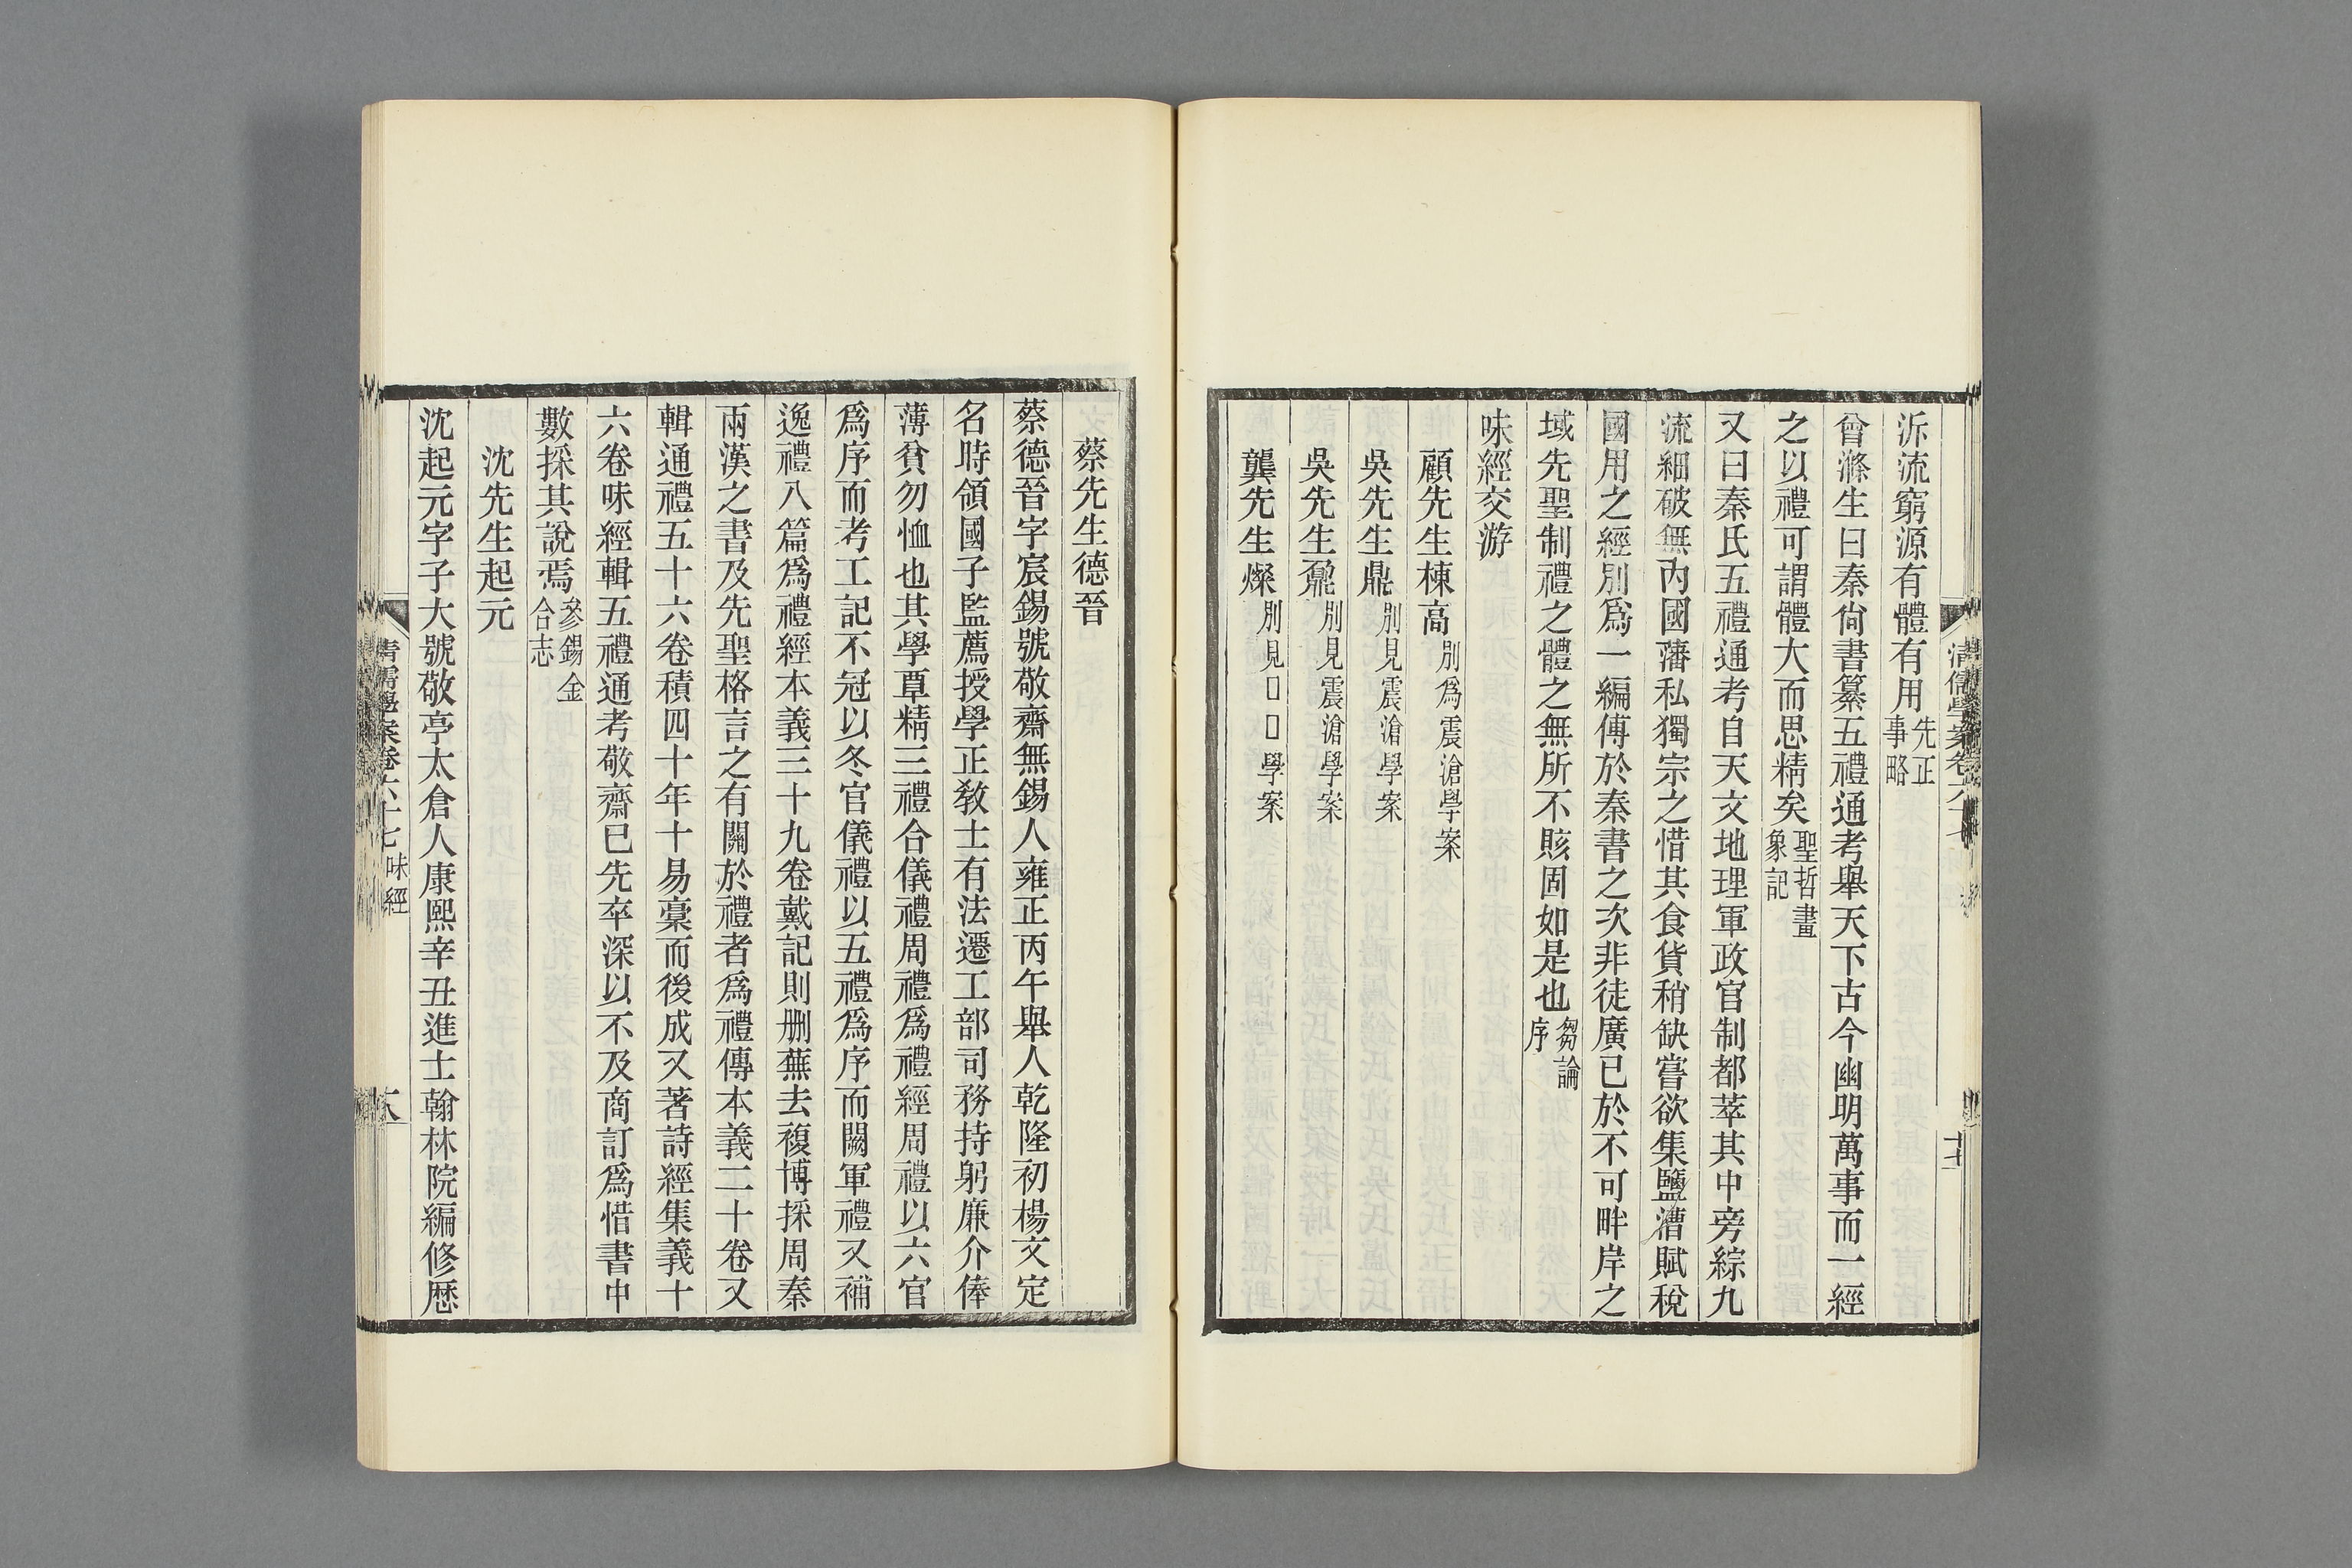 泝流窮源有體有用先正事略
曾滌生曰秦尙書纂五禮通考舉天下古今幽明萬事而一經
之以禮可謂體大而思精矣聖哲畫象記
又曰秦氏五禮通考自天文地理軍政官制都萃其中旁綜九
流細破無內國藩私獨宗之惜其食貨稍缺嘗欲集鹽漕賦稅
國用之經別爲一編傳於秦書之次非徒廣己於不可畔岸之
域先聖制禮之體之無所不賅固如是也芻論序
味經交游
顧先生棟高別爲震滄學案
吳先生鼎別見震滄學案
吳先生鼐別見震滄學案
龔先生燦別見□□學案
清儒學案卷六十七
十七
蔡先生德晉
蔡德晉字宸錫號敬齋無錫人雍正丙午舉人乾隆初楊文定
名時領國子監薦授學正敎士有法遷工部司務持躬廉介俸
薄貧勿恤也其學覃精三禮合儀禮周禮爲禮經周禮以六官
爲序而考工記不冠以冬官儀禮以五禮爲序而闕軍禮又補
逸禮八篇爲禮經本義三十九卷戴記則刪蕪去複博採周秦
兩漢之書及先聖格言之有關於禮者爲禮傳本義二十卷又
輯通禮五十六卷積四十年十易稾而後成又著詩經集義十
六卷味經輯五禮通考敬齋已先卒深以不及商訂爲惜書中
數採其說焉參錫金合志
沈先生起元
沈起元字子大號敬亭太倉人康熙辛丑進士翰林院編修歷
清儒學案卷六十七 味經
十八